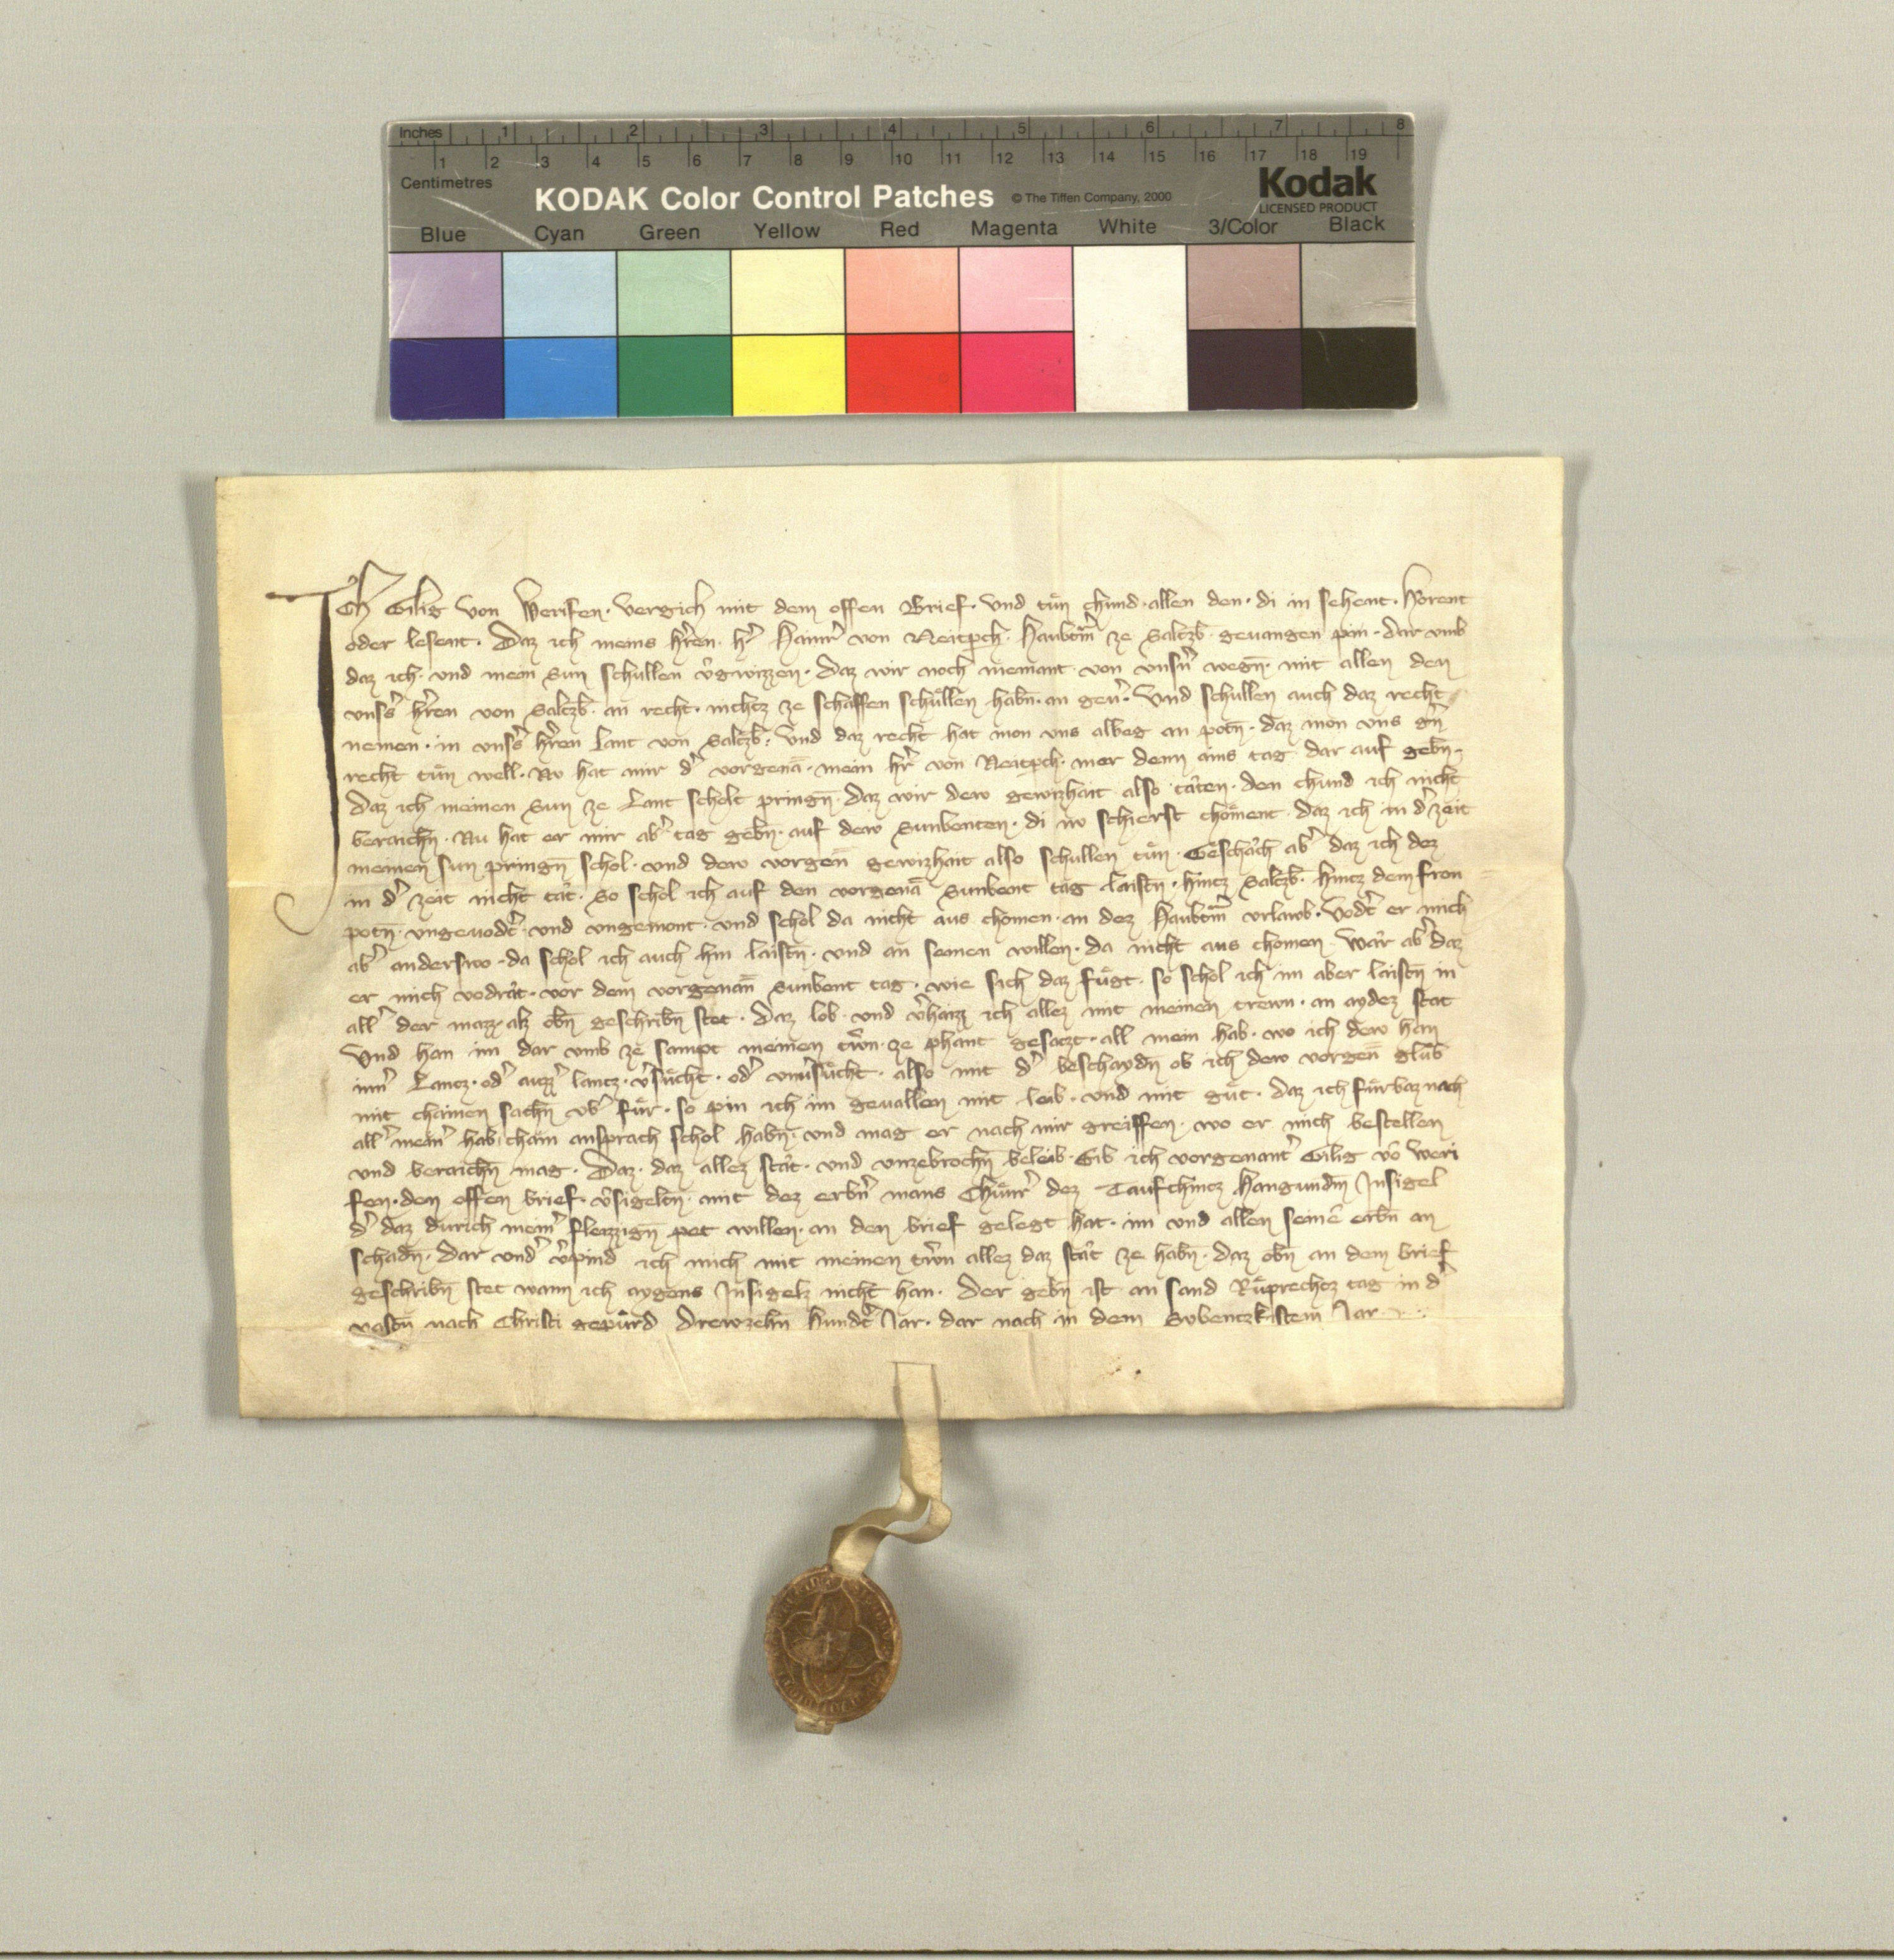 Inches 1 2 3 4 5 6 7 8
1 2 3 4 5 6 7 8 9 10 11 12 13 14 15 16 17 18 19
Centimetres
KODAK Color Control Patches © The Tiffen Company, 2000 Kodak
LICENSED PRODUCT
Blue Cyan Green Yellow Red Magenta White 3/Color Black
Ich Gilig von Werifen · vergich mit dem offen Brief · Und tuͤn chund · allen den · di in sehent · Horent
oder lesent · Daz ich meins hr̄en · hr̄ Hainr̄ von Neitpch · Haubtm̄ ze Saltzb̄ · geuangen pin · dar vmb
daz ich · vnd mein Sun schullen v̾gwizzen · Daz wir noch niemant · von vnsn̾ wegn̄ · mit allen den
vnss̾ hr̄en von Saltzb̄ · an recht · nichtz ze schaffen schuͤllen habn̄ · an gen̾ · Und schullen auch daz recht
nemen · in vnss̾ hr̄en Lant von Saltzb̄ · Und daz recht hat mon vns albeg an potn̄ · daz mon vns gn̄
recht tuͤn well · Nv hat mir d̾ vorgenā · mein hr̄ von Neitpch · mer denn ains tag dar auf gebn̄ ·
Daz ich meinen Sun ze Lant scholt pringn̄ · Daz wir dew gewizhait also taͤten · den chund ich nicht
beraichn̄ · Nu hat er mir ab̾ tag gebn̄ · auf dew Sunbenten · di nv schierst choͤment · daz ich in d̾ zeit
meinen sun pringn̄ schol · vnd dew vorgen̄ gewizhait also schullen tuͤn · Geschaͤch ab̾ daz ich dez
in d̾ zeit nicht taͤt · So schol ich auf den vorgenā Sunbent tag laistn̄ · hintz Saltzb̄ · hintz dem fron
potn̄ · vngeuodt̾ · vnd vngemont · vnd schol da nicht aus chomen · an dez Haubtm̄ vrlawb · Vodt̾ er mich
ab̾ anderswo · da schol ich auch hin laistn̄ · vnd an seinen willen · da nicht aus chomen · Waͤr ab̾ daz
er mich vodrat · vor dem vorgenan̄ Sunbent tag · wie sich daz fuͤgt · so schol ich im aber laistn̄ in
all̾ der mazz · alz obn̄ geschribn̄ stet · Daz lob · vnd v̾haizz ich allez mit meinen trewn · an aydez stat
Und han im dar vmb ze sampt meinen tr̄wn · ze phant gesatzt · all mein hab · wo ich dew han
inn̾ Lantz · od̾ auzz̾ lantz · v̾suͤcht · od̾ vnu̾suͤcht · also mit d̾ beschaydn̄ ob ich dew vorgen̄ gluͤb
mit chainen sachn̄ vb̾ fuͤr · so pin ich im geuallen mit leib · vnd mit guͤt · daz ich fuͤrbaz nach
all̾ mein̾ hab · chain ansprach schol habn̄ · vnd mag er nach mir greiffen · wo er mich bestellen
vnd beraichn̄ mag · Daz · daz allez staͤt · vnd vnzebrochn̄ beleib · Gib ich vorgenant̾ Gilig vō Weri
fen · den offen brief · v̾sigeltn̄ · mit dez erbn̾ mans Chuͤnr̄ dez Taufchintz Hangundm̄ Insigel
d̾ daz durich mein̾ fleizzign̄ pet willen · an den brief gelegt hat · im vnd allen seinē erbn̄ an
schadn̄ · Dar vnd̾ v̾pind ich mich mit meinen tr̄wn allez daz staͤt ze habn̄ · daz obn̄ an dem brief
geschribn̄ stet wann ich aygens Insigelz nicht han · Der gebn̄ ist an sand Ruͤprechtz tag in d̾
vastn̄ nach Christi gepuͤrd Drewzehn̄ hundt̾ Jar · dar nach in dem Sybentzkistem Jar